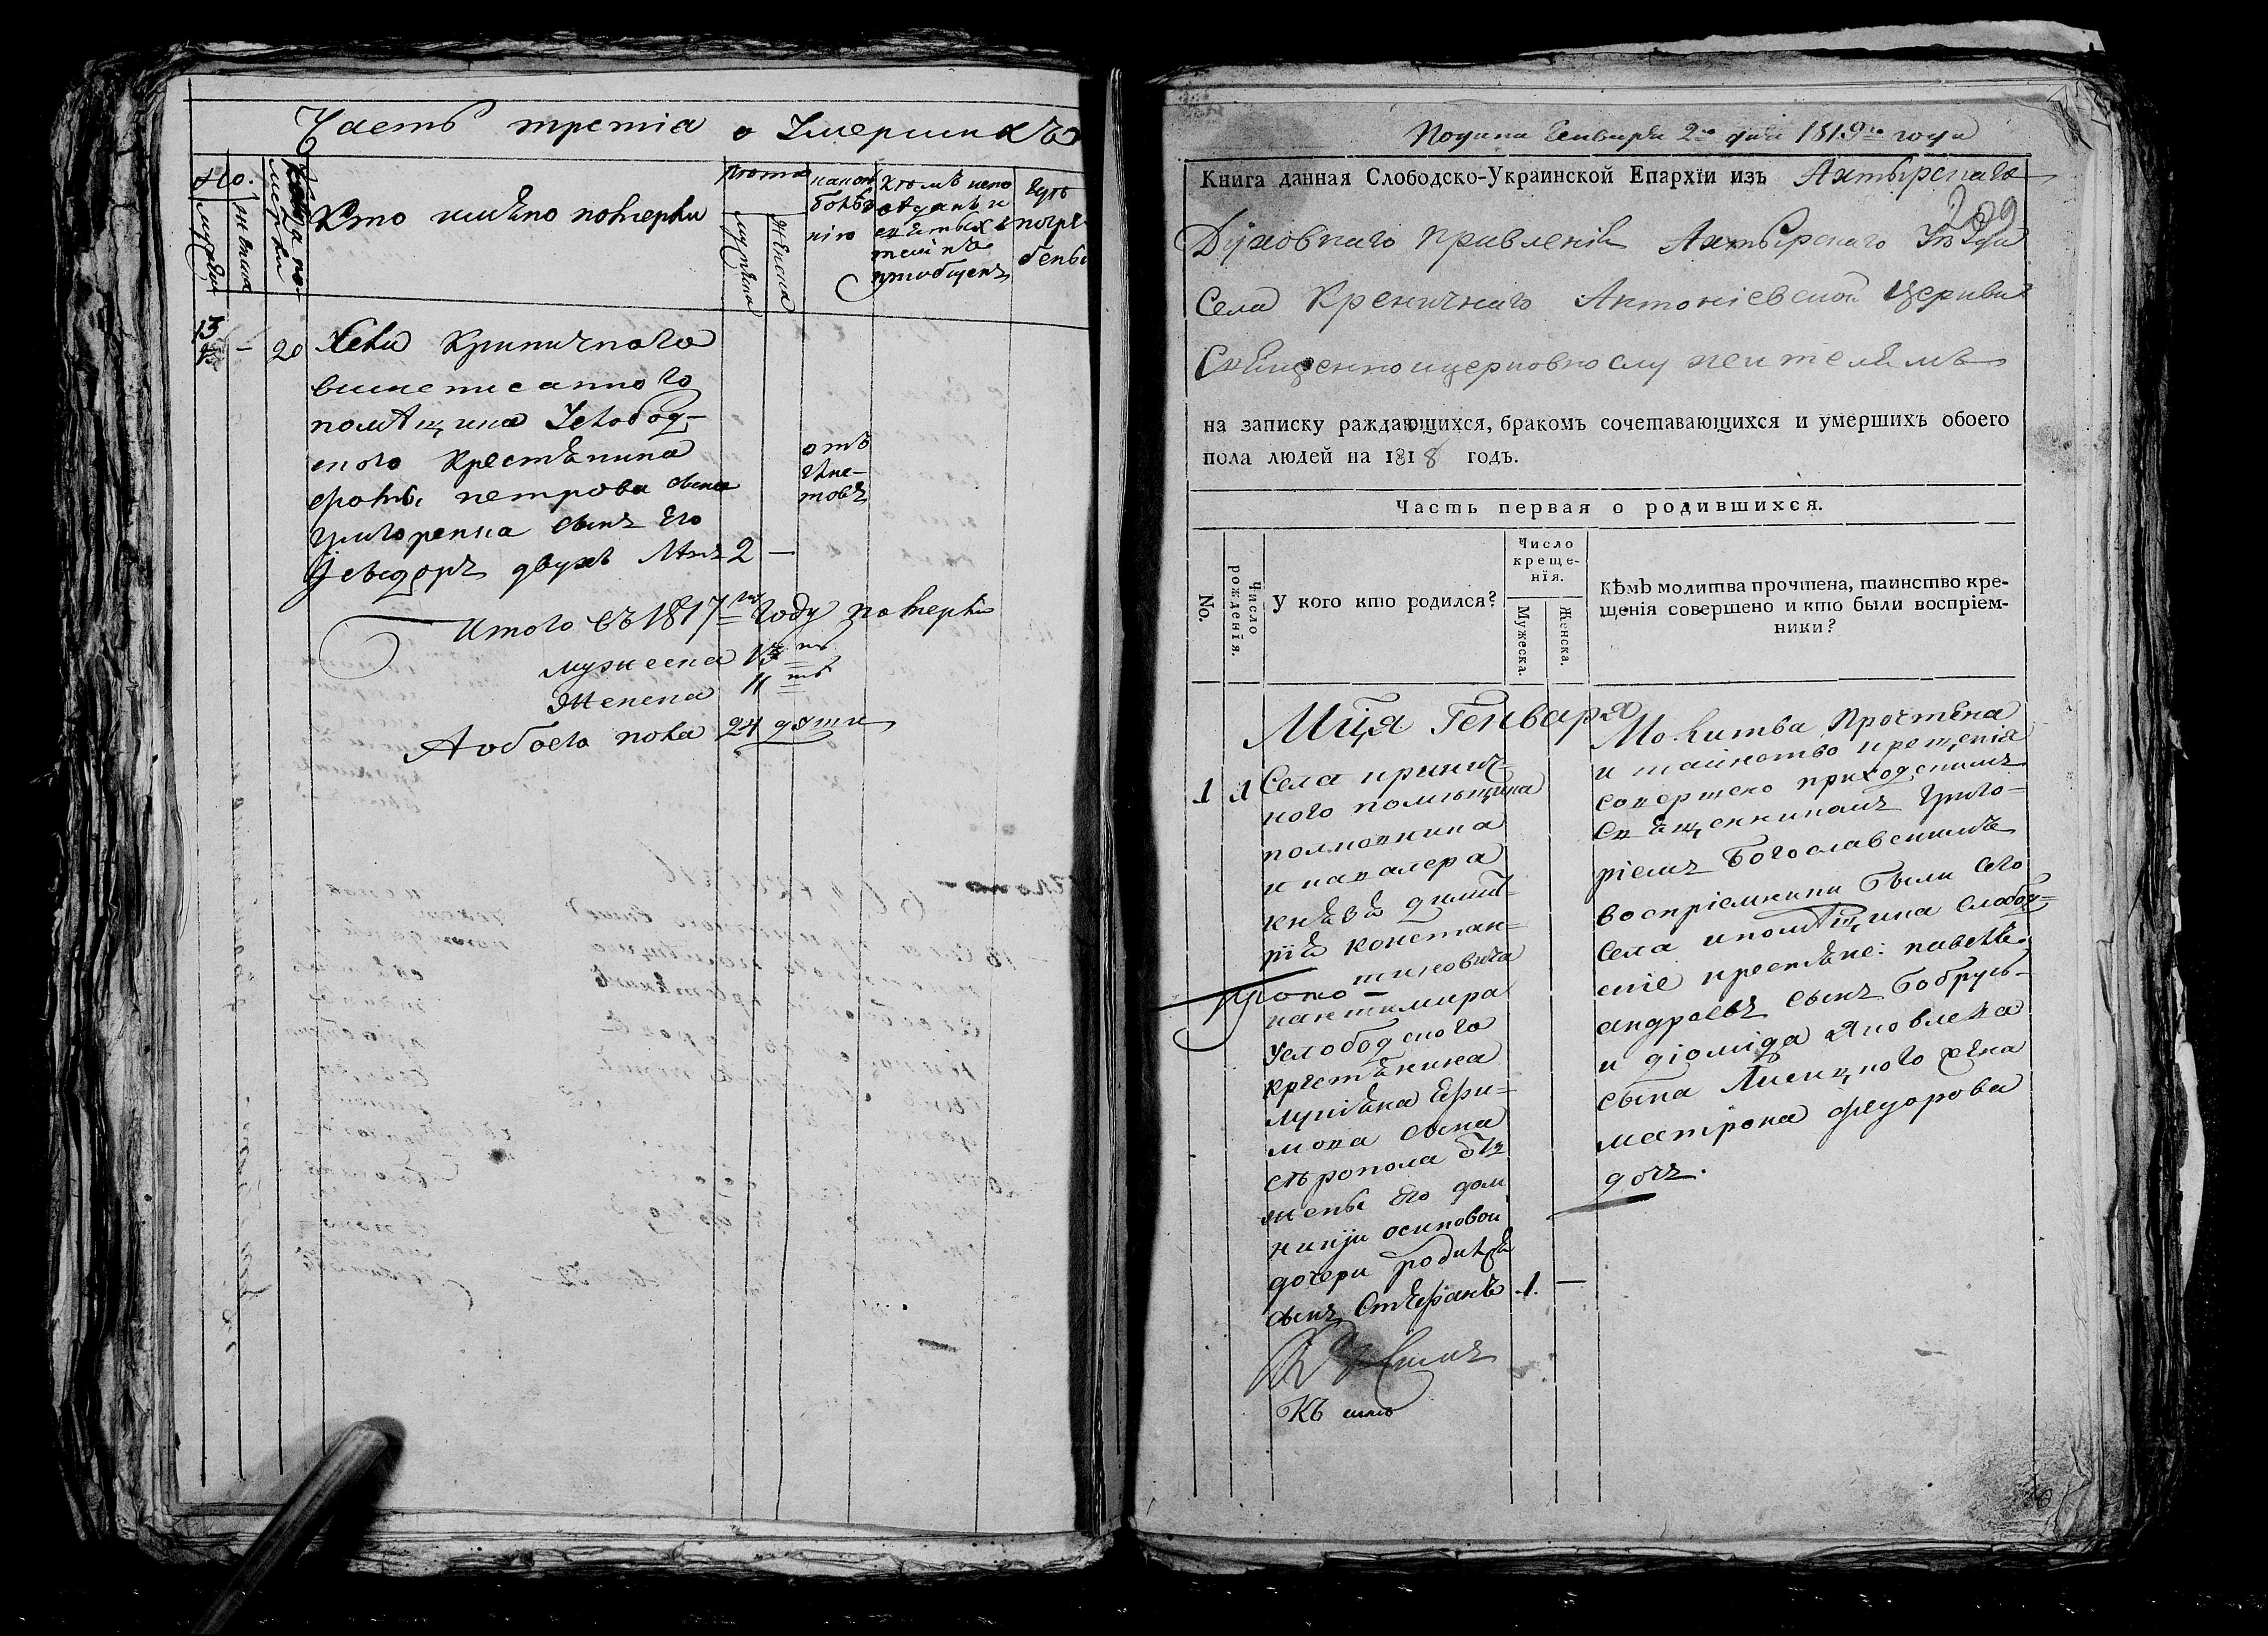 Часть третія о Умершихъ
No.
мужеска
женска
Когда по-
мерли
Кто имѣно померли
Лѣта
мужеска
женска
какою
болѣз
нію
Кѣмъ испо
вѣданъ и
святыхъ
таинъ
приобщенъ
Гдѣ
погре
бены
13
—
20
Села Криничного
вышеписанного
помѣщика Услобод-
ского Крестьянина
петрова сына
Григоренка сынъ Его
Ѳеодоръ двухъ Лѣтъ
2
—
отъ
глис-
товъ
Итого въ 1817мъ Году померло
мужеска 13ть
Женска 11ть
А обоего пола 24 души
Подана Генваря 2го дня 1819го года
Книга данная Слободско-Украинской Епархїи изъ Ахтырскаго
209
Духовнаго Правленія Ахтырскаго Уѣзда
Села Креничнаго Антоніевской Церкви
Священноцерковнослужителямъ
на записку раждающихся, бракомъ сочетавающихся и умершихъ обоего
пола людей на 1818 годъ.
Часть первая о родившихся.
No.
Число
рожденїя.
У кого кто родился?
Число
креще-
нїя.
Мужеска.
Женска.
Кѣмъ молитва прочтена, таинство кре-
щенія совершено и кто были воспріем-
ники?
Мц҃а Генваря
1
1
Села кринич-
ного помѣщика
полковника
и кавалера
князя дими-
рія констан-
тиновича
кантимира
услободского
крестьянина
Лукіяна Ефи-
мова сына
жены его дом
никіи осиповой
дочери родился
сынъ Стефанъ
1.
—
Молитва Прочтена
и таинство крещенія
совершено приходскимъ
Священникомъ Григо-
ріемъ Богославскимъ
воспріемники были Сего
Села и помѣщика слобод-
скіе крестьяне: павелъ
андреевъ сынъ бобрусь
и діомида Яковлева
сына Лисицного жена
матрона федорова
дочъ.